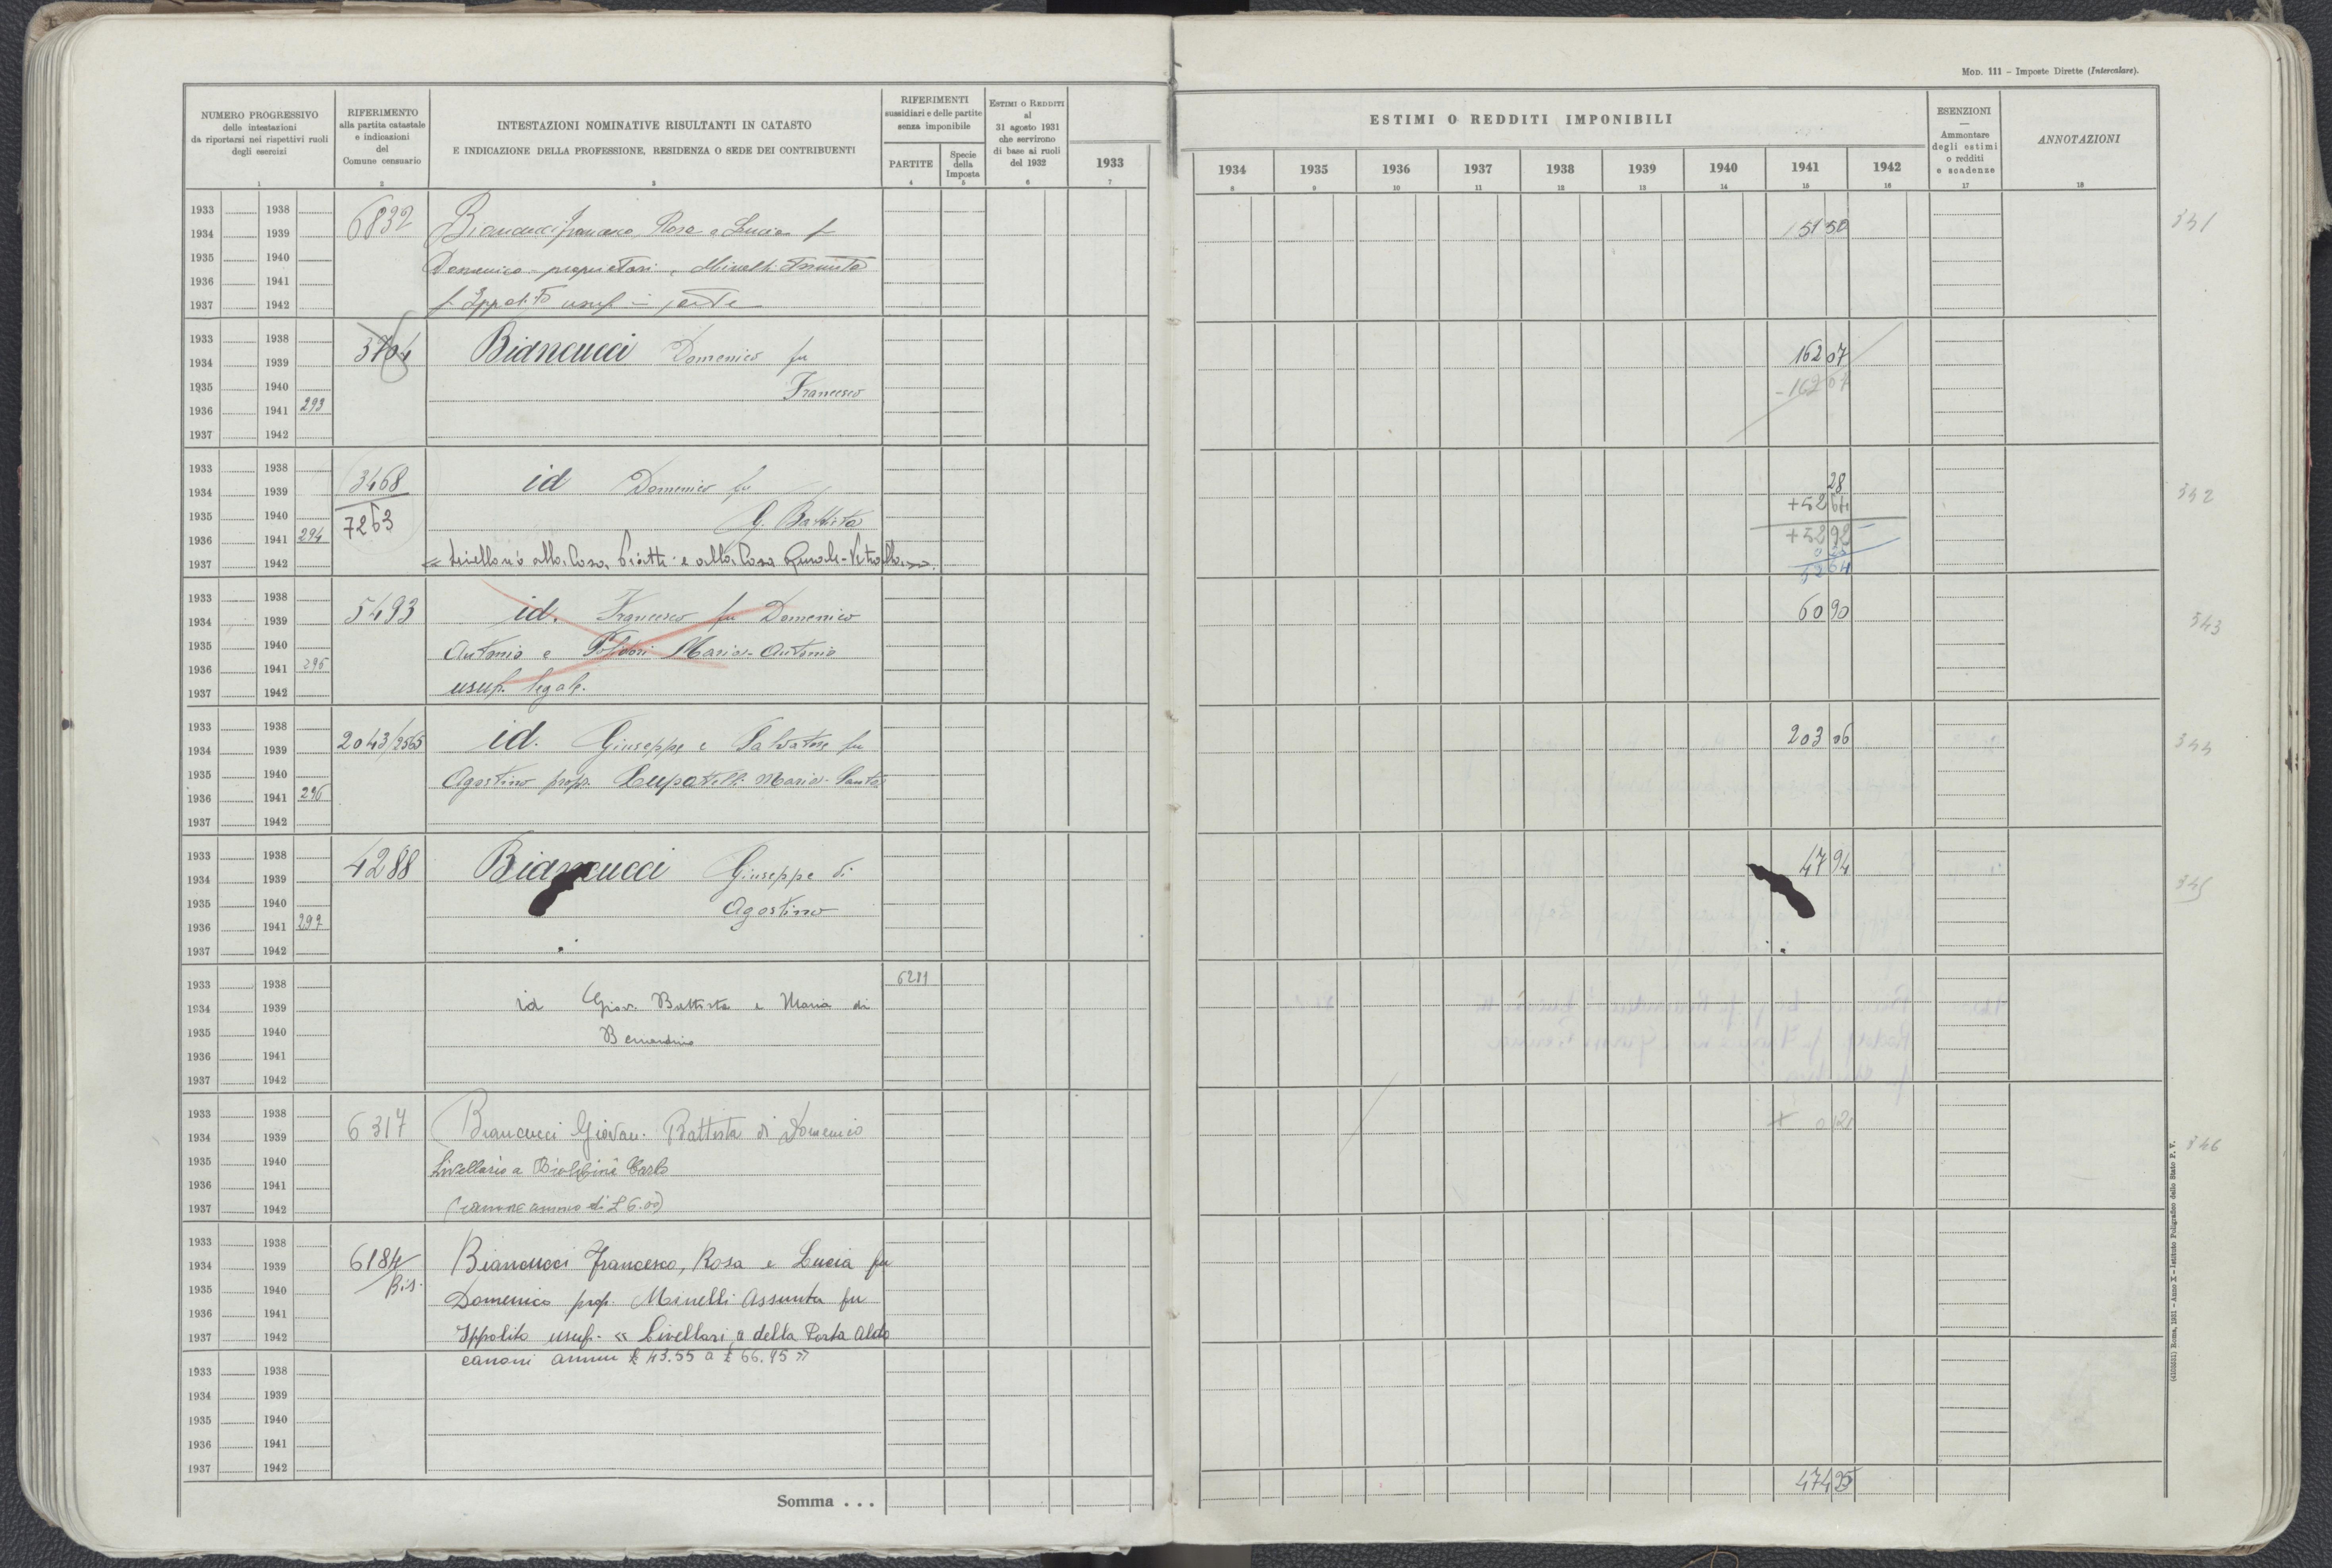 MOD. 111 – Imposte Dirette (Intercalare).
NUMERO PROGRESSIVO
delle intestazioni
da riportarsi nei rispettivi ruoli
degli esercizi
1
RIFERIMENTO
alla partita catastale
e indicazioni
del
Comune censuario
2
INTESTAZIONI NOMINATIVE RISULTANTI IN CATASTO
E INDICAZIONE DELLA PROFESSIONE, RESIDENZA O SEDE DEI CONTRIBUENTI
3
RIFERIMENTI
sussidiari e delle partite
senza imponibile
PARTITE
4
Specie
della
Imposta
5
ESTIMI O REDDITI
al
31 agosto 1931
che servirono
di base ai ruoli
del 1932
6
1933
7
ESTIMI O REDDITI IMPONIBILI
1934 1935 1936 1937 1938 1939 1940 1941 1942
8 9 10 11 12 13 14 15 16
ESENZIONI
—
Ammontare
degli estimi
o redditi
e scadenze
17
ANNOTAZIONI
18
1933 1938
1934 1939
1935 1940
1936 1941
1937 1942
6832
Biancucci Francesco, Rosa e Lucia f
Domenico proprietari, Minelli Assunta
f Ippolito usuf in parte
51 50
341
1933 1938
1934 1939
1935 1940
1936 1941 293
1937 1942
3704
Biancucci Domenico fu
Francesco
162 07
- 162 07
1933 1938
1934 1939
1935 1940
1936 1941 294
1937 1942
3468
7263
id Domenico fu
G. Battista
« Livellario alla Casa e alla Casa »
28
+ 52 64
+ 52 92
52 64
342
1933 1938
1934 1939
1935 1940
1936 1941 295
1937 1942
5493
id. Francesco fu Domenico
Antonio e Polidori Maria-Antonia
usuf. legale.
60 90
343
1933 1938
1934 1939
1935 1940
1936 1941 296
1937 1942
2043/2565
id. Giuseppe e Salvatore fu
Agostino propr. Lupatelli Maria-Santa
203 06
344
1933 1938
1934 1939
1935 1940
1936 1941 297
1937 1942
4288
Biancucci Giuseppe di
Agostino
47 94
345
1933 1938
1934 1939
1935 1940
1936 1941
1937 1942
id Giov. Battista e Maria di
Bernardino
6211
1933 1938
1934 1939
1935 1940
1936 1941
1937 1942
6317
Biancucci Giovan. Battista di Domenico
Livellario a Carlo
(canone annuo di £ 6.00)
+ 0 21
346
1933 1938
1934 1939
1935 1940
1936 1941
1937 1942
6184
Bis.
Biancucci Francesco, Rosa e Lucia fu
Domenico prop. Minelli Assunta fu
Ippolito usuf. « Livellari a della Porta Aldo
canoni annui £ 43.55 a £ 66.95 »
1933 1938
1934 1939
1935 1940
1936 1941
1937 1942
Somma . . .
474 25
(4103031) Roma, 1931 – Anno X – Istituto Poligrafico dello Stato P. V.